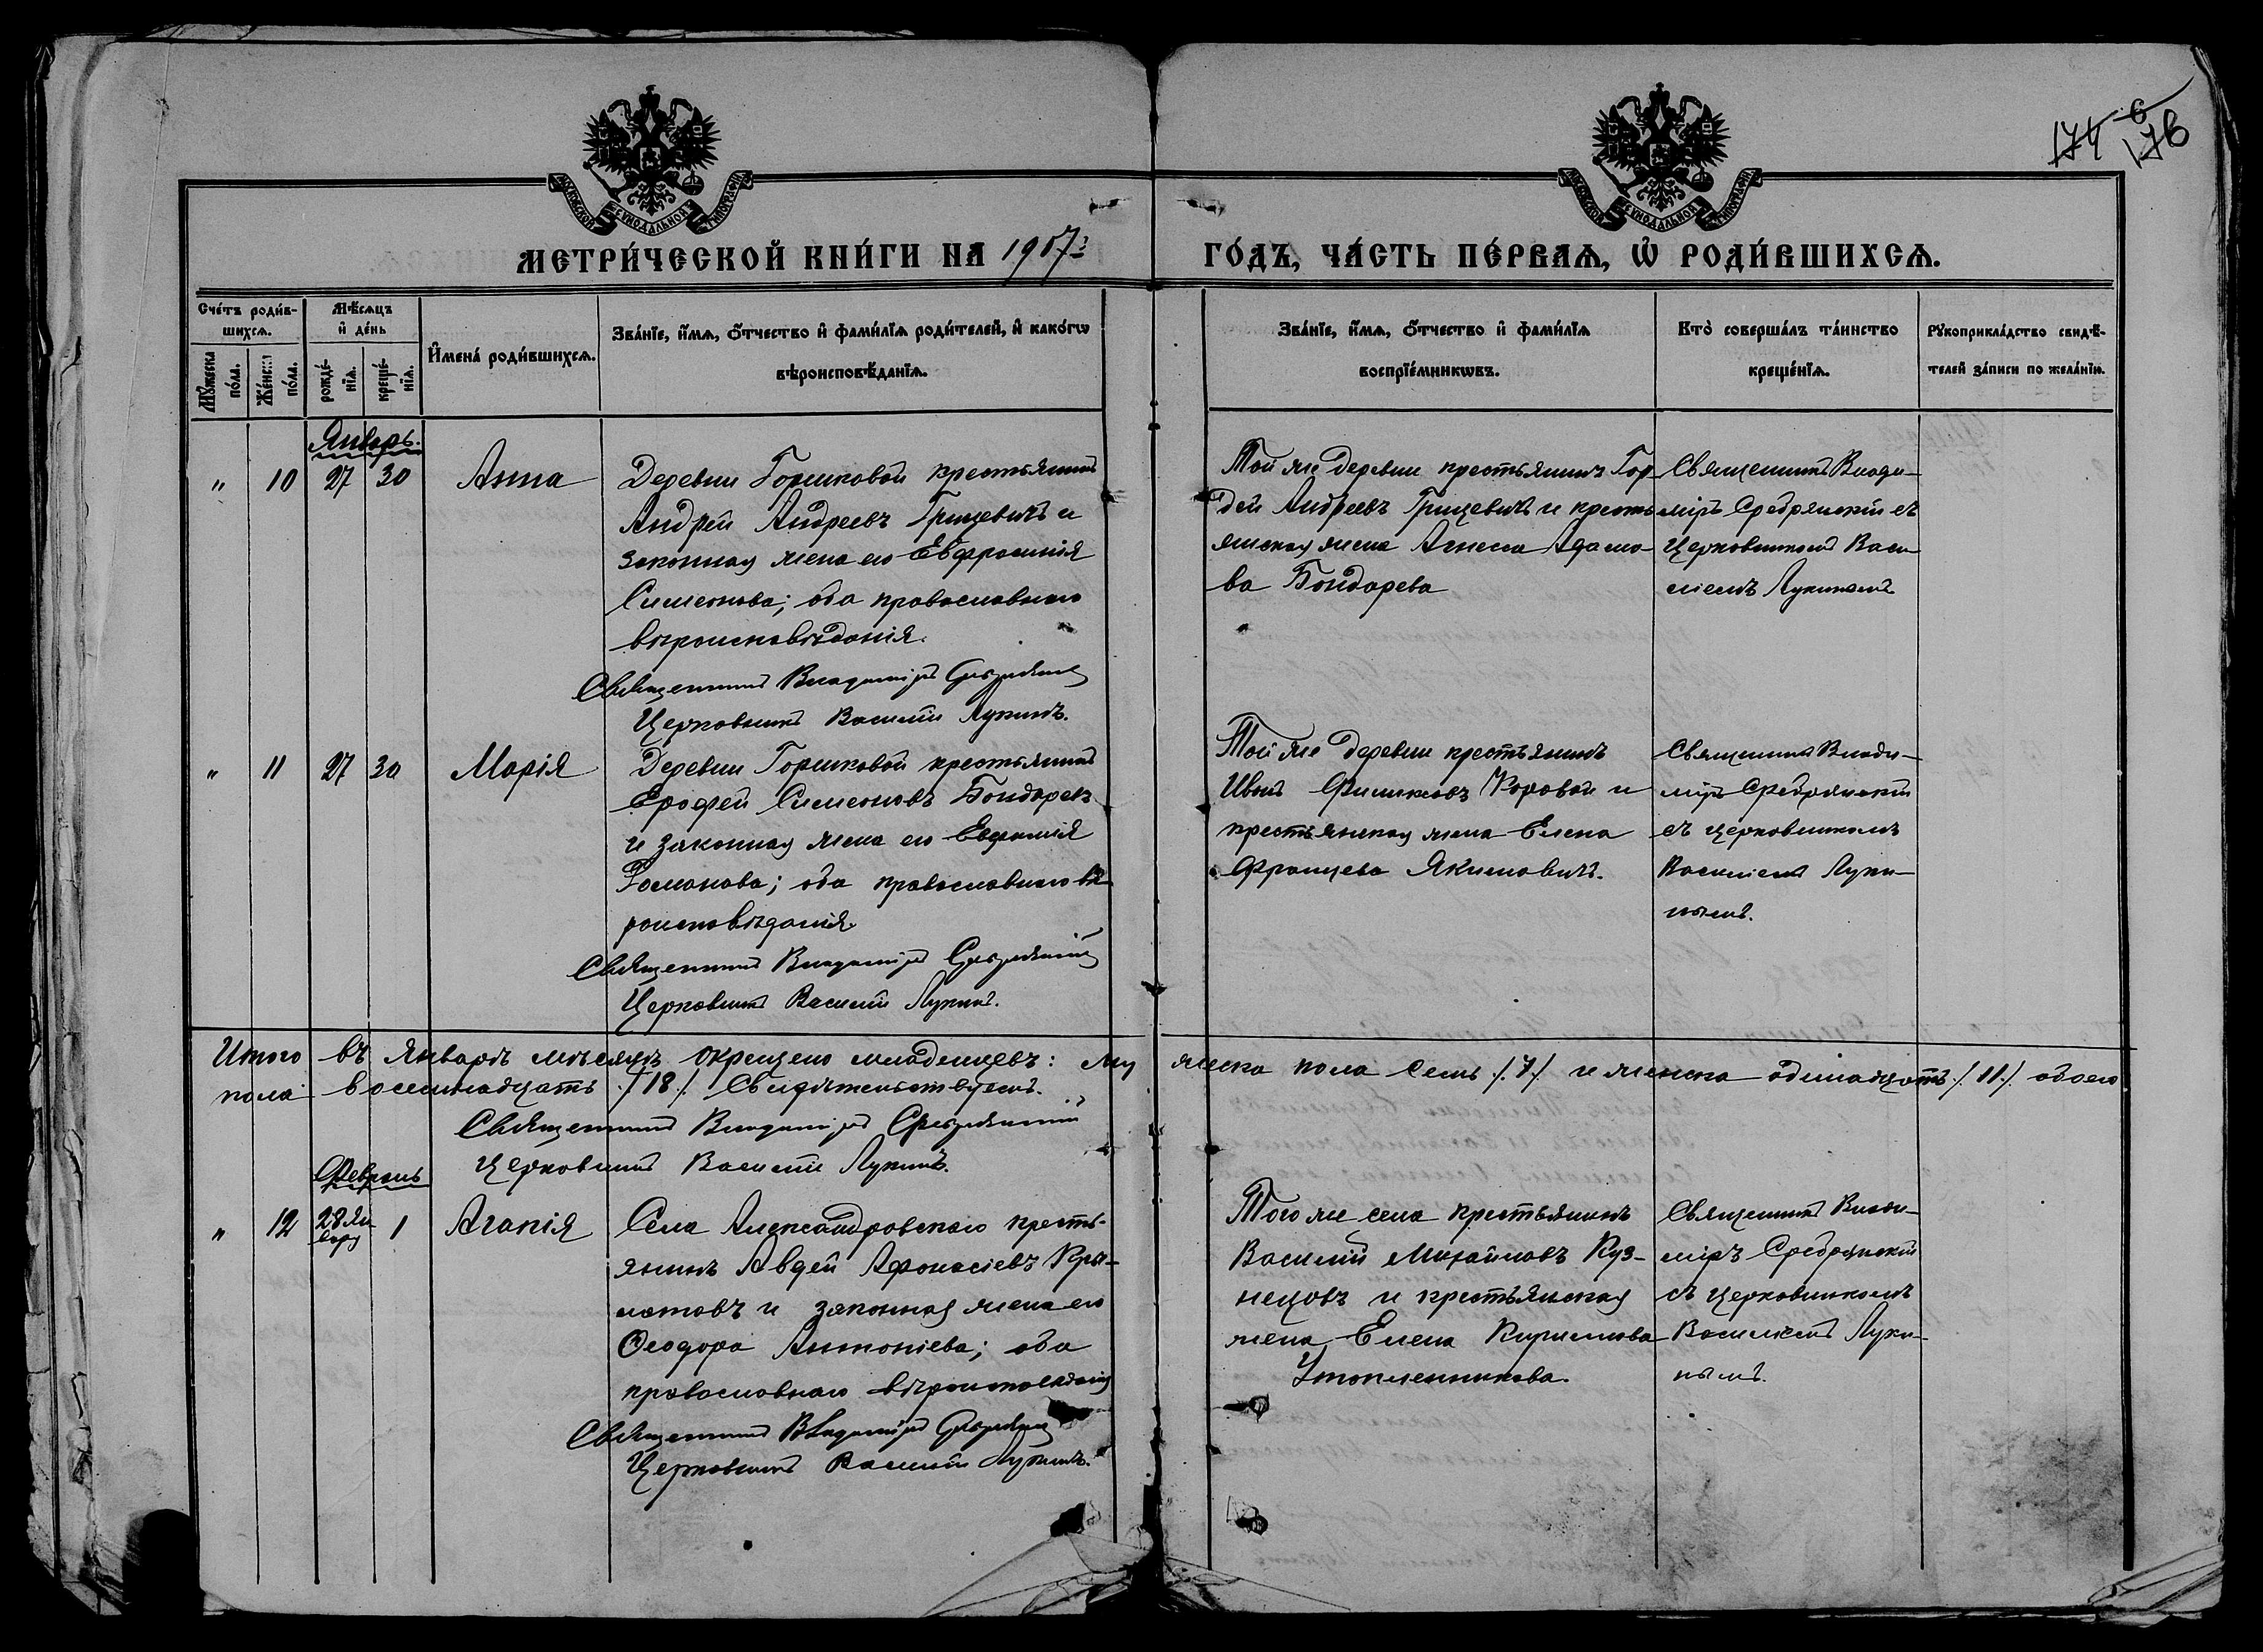 174 6
176
МОСКОВСКОЙ СѴНОДАЛЬНОЙ ТИПОГРАФІИ
МОСКОВСКОЙ СѴНОДАЛЬНОЙ ТИПОГРАФІИ
МЕТРИ́ЧЕСКОЙ КНИ́ГИ НА 1907й ГО́ДЪ, ЧА́СТЬ ПЕ́РВАѦ, Ѡ҆ РОДИ́ВШИХСѦ.
Сче́тъ роди́в-
шихсѧ.
Мꙋ́жеска по́ла.
Же́нска по́ла.
Мѣ́сѧцъ
и҆ де́нь
рожде́-
нїѧ.
креще́-
нїѧ.
И҆мена̀ роди́вшихсѧ.
Зва́нїе, и҆́мѧ, ѻ҆́тчество и҆ фами́лїѧ роди́телей, и҆ како́гѡ
вѣроисповѣ́данїѧ.
Зва́нїе, и҆́мѧ, ѻ҆́тчество и҆ фами́лїѧ
воспрїе́мникѡвъ.
Кто̀ соверша́лъ та́инство
креще́нїѧ.
Рꙋкоприкла́дство свидѣ́-
телей за́писи по жела́нїю.
Январь.
" 10 27 30 Анна
Деревни Горшковой крестьянинъ
Андрей Андреевъ Грицевичъ и
законная жена его Евфросинія
Симеонова; оба православнаго
вѣроисповѣданія.
Священникъ Владиміръ Сребрянскій
Церковникъ Василій Лукинъ.
Той же деревни крестьянинъ Гор
дей Андреевъ Грицевичъ и кресть
янская жена Агнесса Адамо-
ва Бондарева
Священникъ Влади-
міръ Сребрянскій съ
церковникомъ Васи
ліемъ Лукинымъ
" 11 27 30 Марія
Деревни Горшковой крестьянинъ
Ерофей Симеоновъ Бондаревъ
и законная жена его Евфимія
Романова; оба православнаго вѣ
роисповѣданія.
Священникъ Владиміръ Сребрянскій
Церковникъ Василій Лукинъ.
Той же деревни крестьянинъ
Иванъ Филипповъ Коровай и
крестьянская жена Елена
Францева Якимовичъ.
Священникъ Влади-
міръ Сребрянскій
съ церковникомъ
Василіемъ Луки-
нымъ.
Итого въ Январѣ мѣсяцѣ окрещено младенцевъ: му жеска пола семь /7/ и женска одинадцать /11/ обоего
пола восемнадцать /18/. Свидѣтельствуемъ.
Священникъ Владиміръ Сребрянскій
Церковникъ Василій Лукинъ.
Февраль
" 12 28 Ян
варя 1 Агапія
Села Александровскаго кресть-
янинъ Авдей Афонасіевъ
и законная жена его
Ѳеодора Антоніева; оба
православнаго вѣроисповѣданія
Священникъ Владиміръ Сребрянскій
Церковникъ Василій Лукинъ.
Того же села крестьянинъ
Василий Михайловъ Куз-
нецовъ и крестьянская
жена Елена Кирилова
Утопленникова.
Священникъ Влади-
міръ Сребрянскій
съ церковникомъ
Василіемъ Луки-
нымъ.